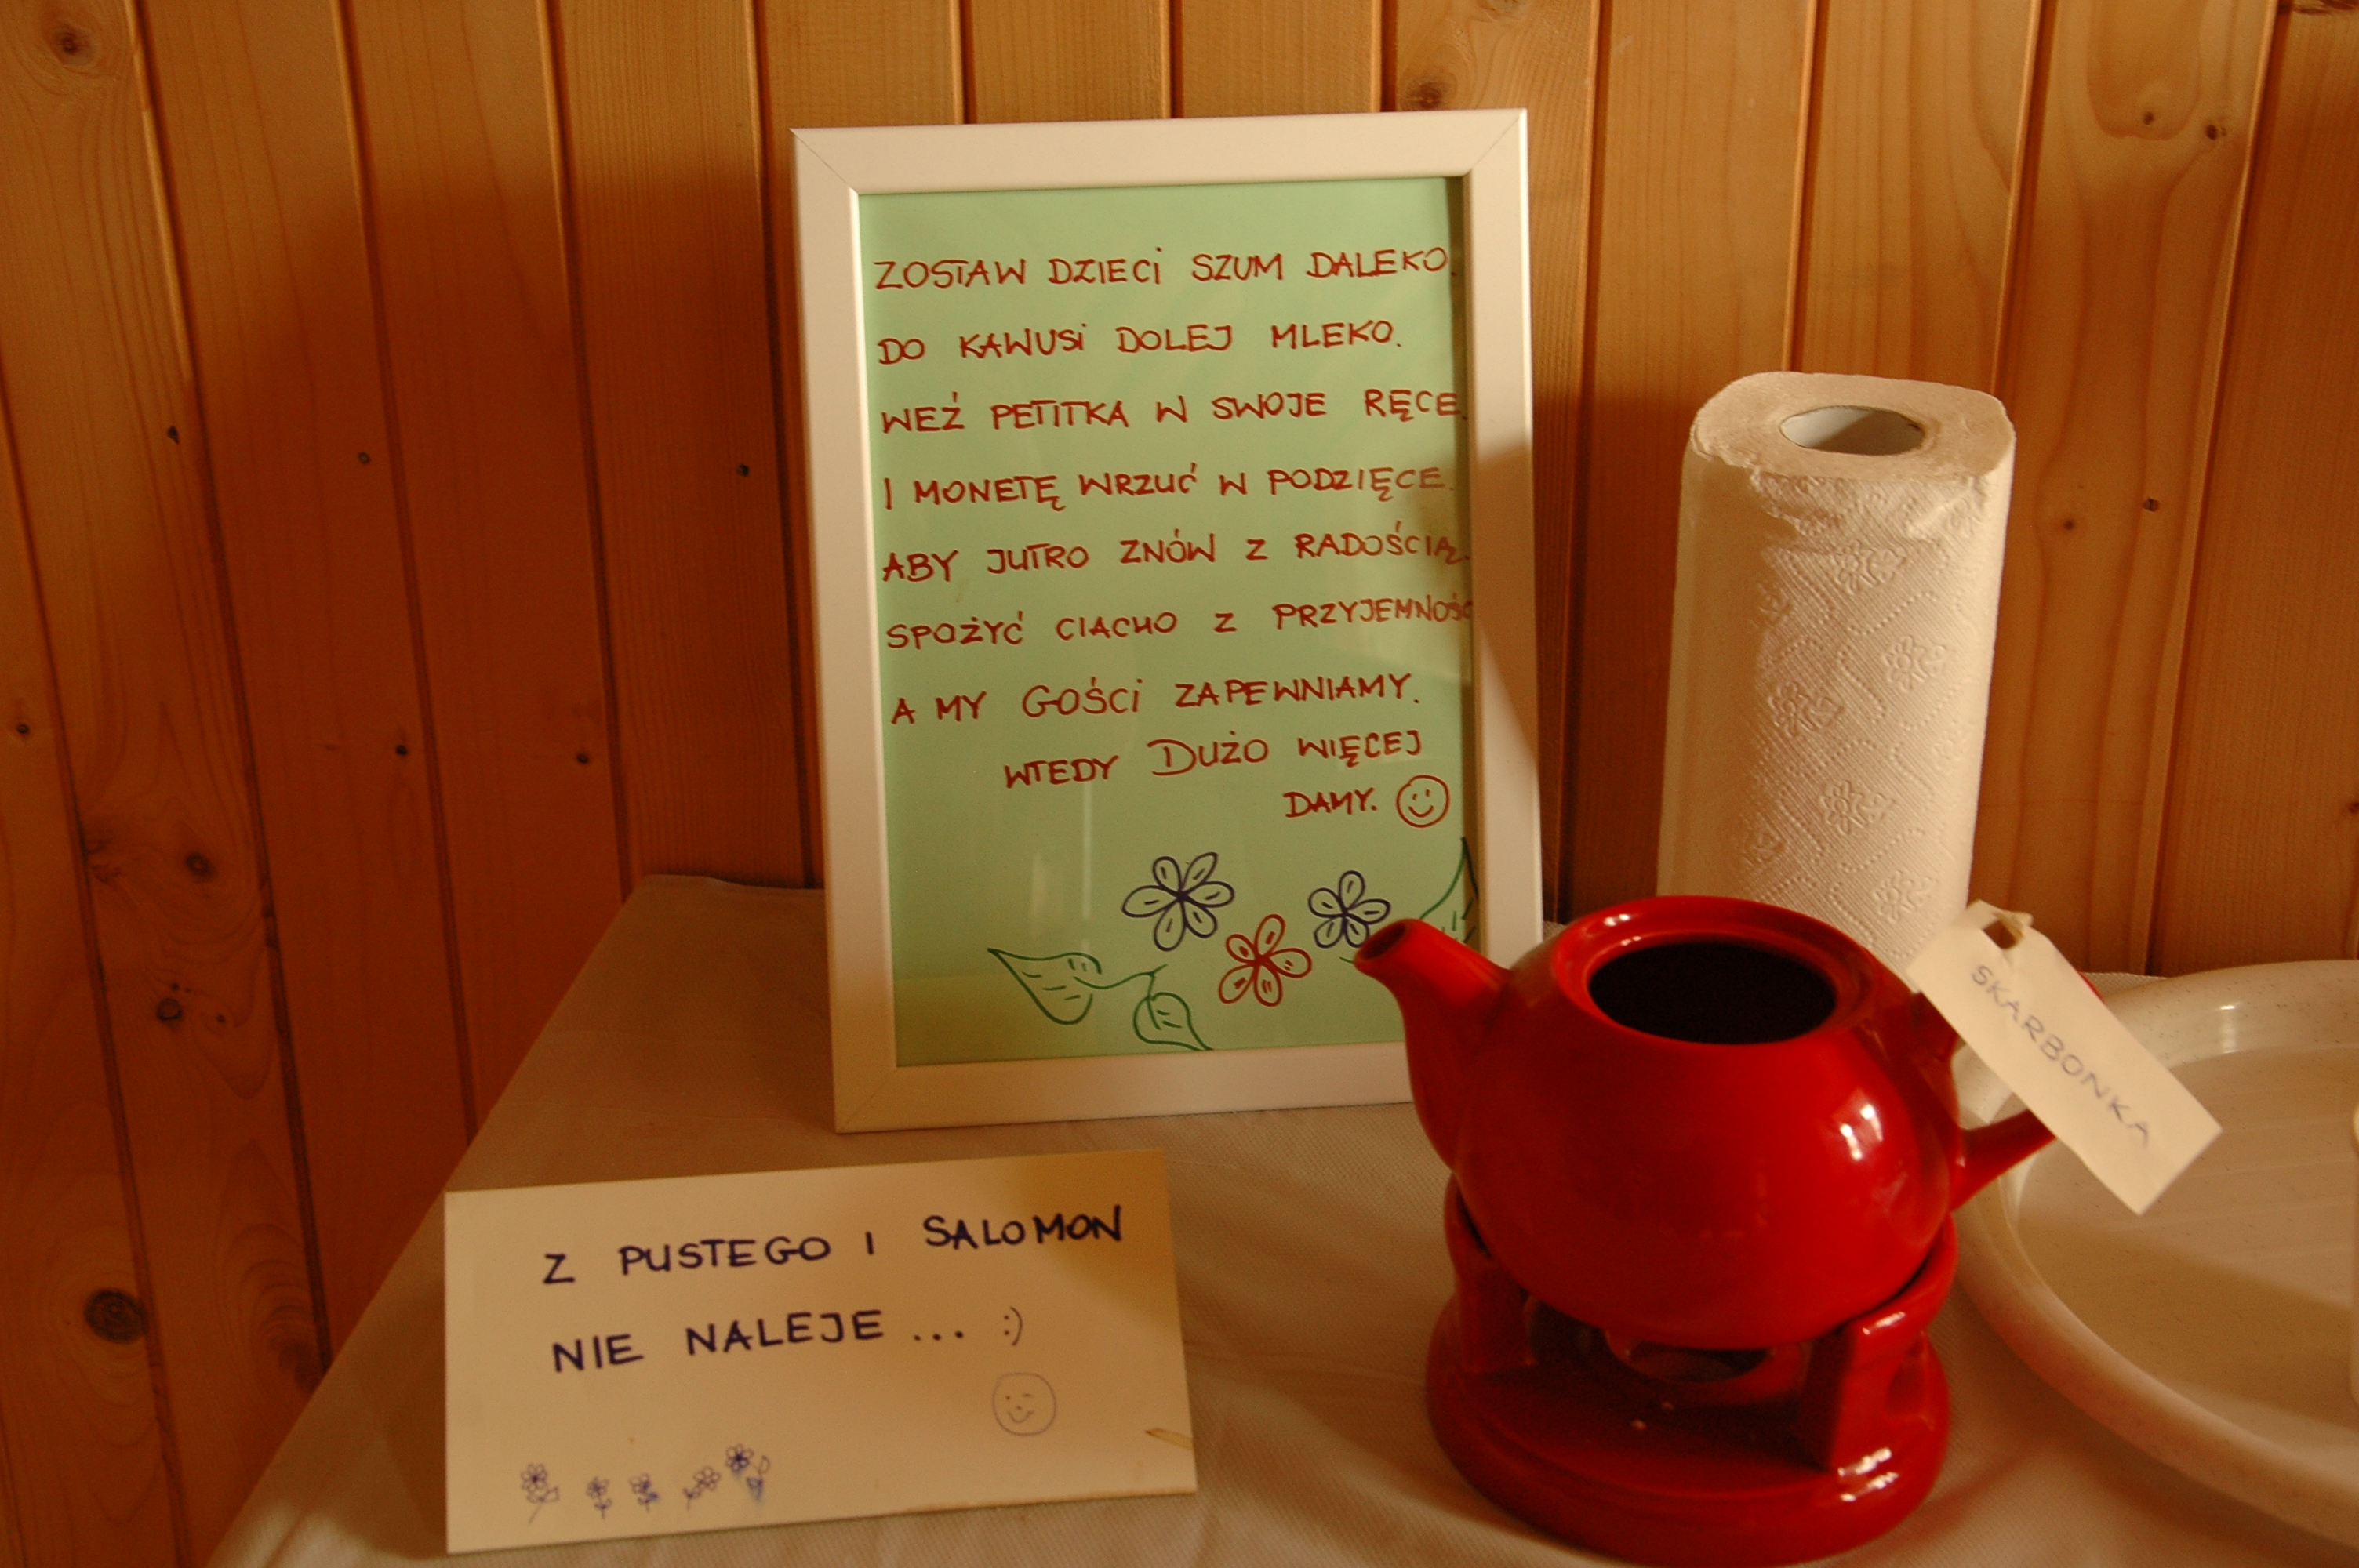 ZOSTAW DZIECI SZUM DALEKO.
DO KAWUSI DOLEJ MLEKO.
WEŹ PETITKA W SWOJE RĘCE.
I MONETĘ WRZUĆ W PODZIĘCE.
ABY JUTRO ZNÓW Z RADOŚCIĄ.
SPOŻYĆ CIACHO Z PRZYJEMNOŚC
A MY GOŚCI ZAPEWNIAMY.
WTEDY DUŻO WIĘCEJ
DAMY.
SKARBONKA
Z PUSTEGO I SALOMON
NIE NALEJE ... :)